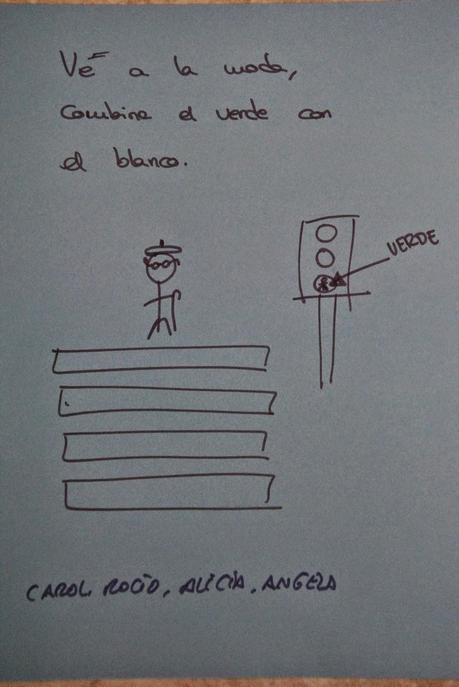 Vé a la moda,
Combina el verde con
el blanco.
VERDE
CAROL, ROCÍO, ALICIA, ANGELA